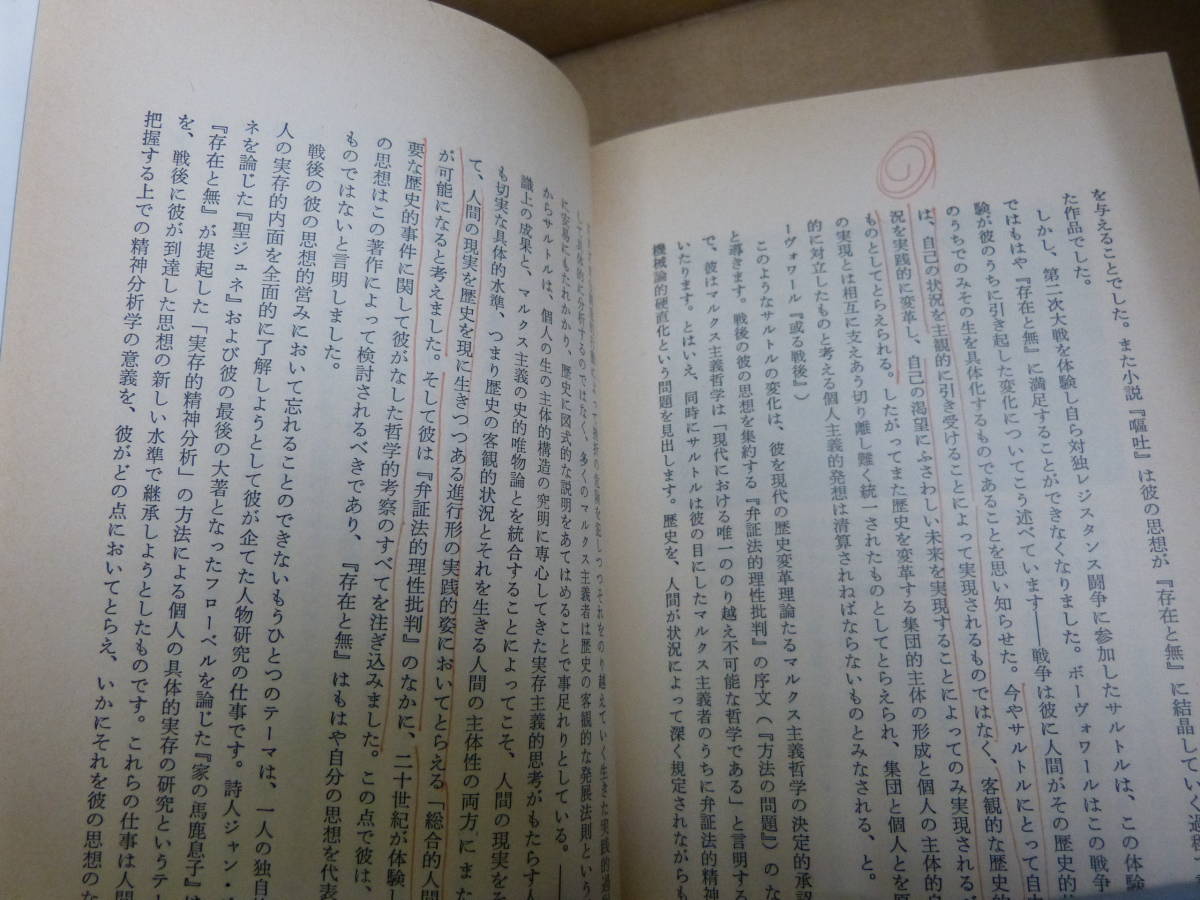 を与えることでした。また小説『嘔吐』は彼の思想が『存在と無』に結晶していく過程
た作品でした。
しかし、第二次大戦を体験し自ら対独レジスタンス闘争に参加したサルトルは、この体験
ではもはや『存在と無』に満足することができなくなりました。ボーヴォワールはこの戦争
験が彼のうちに引き起した変化についてこう述べています——戦争は彼に人間がその歴史的
のうちでのみその生を具体化するものであることを思い知らせた。今やサルトルにとって自由
は、自己の状況を主観的に引き受けることによって実現されるものではなく、客観的な歴史的
況を実践的に変革し、自己の渇望にふさわしい未来を実現することによってのみ実現される
ものとしてとらえられる。したがってまた歴史を変革する集団的主体の形成と個人の主体的
の実現とは相互に支えあう切り離し難く統一されたものとしてとらえられ、集団と個人とを原
的に対立したものと考える個人主義的発想は清算されねばならないものとみなされる、と。
ーヴォワール『或る戦後』）
このようなサルトルの変化は、彼を現代の歴史変革理論たるマルクス主義哲学の決定的承認
と導きます。戦後の彼の思想を集約する『弁証法的理性批判』の序文（『方法の問題』）のな
で、彼はマルクス主義哲学は「現代における唯一ののり越え不可能な哲学である」と言明する
いたります。とはいえ、同時にサルトルは彼の目にしたマルクス主義者のうちに弁証法的精神
機械論的硬直化という問題を見出します。歴史を、人間が状況によって深く規定されながらも
つつそれをのり越えていく生きた実践的過
して具体的に分析するのではなく、多くのマルクス主義者は歴史の客観的な発展法則という
に容易にもたれかかり、歴史に図式的な説明をあてはめることで事足れりとしている。——
からサルトルは、個人の生の主体的構造の究明に専心してきた実存主義的思考がもたらす人
識上の成果と、マルクス主義の史的唯物論とを統合することによってこそ、人間の現実をそ
も切実な具体的水準、つまり歴史の客観的状況とそれを生きる人間の主体性の両方にまた
て、人間の現実を歴史を現に生きつつある進行形の実践的姿においてとらえる「総合的人間
が可能になると考えました。そして彼は『弁証法的理性批判』のなかに、二十世紀が体験し
要な歴史的事件に関して彼がなした哲学的考察のすべてを注ぎ込みました。この点で彼は、
の思想はこの著作によって検討されるべきであり、『存在と無』はもはや自分の思想を代表
ものではないと言明しました。
戦後の彼の思想的営みにおいて忘れることのできないもうひとつのテーマは、一人の独自
人の実存的内面を全面的に了解しようとして彼が企てた人物研究の仕事です。詩人ジャン・
ネを論じた『聖ジュネ』および彼の最後の大著となったフローベルを論じた『家の馬鹿息子』は
『存在と無』が提起した「実存的精神分析」の方法による個人の具体的実存の研究というテー
を、戦後に彼が到達した思想の新しい水準で継承しようとしたものです。これらの仕事は人間
把握する上での精神分析学の意義を、彼がどの点においてとらえ、いかにそれを彼の思想のな